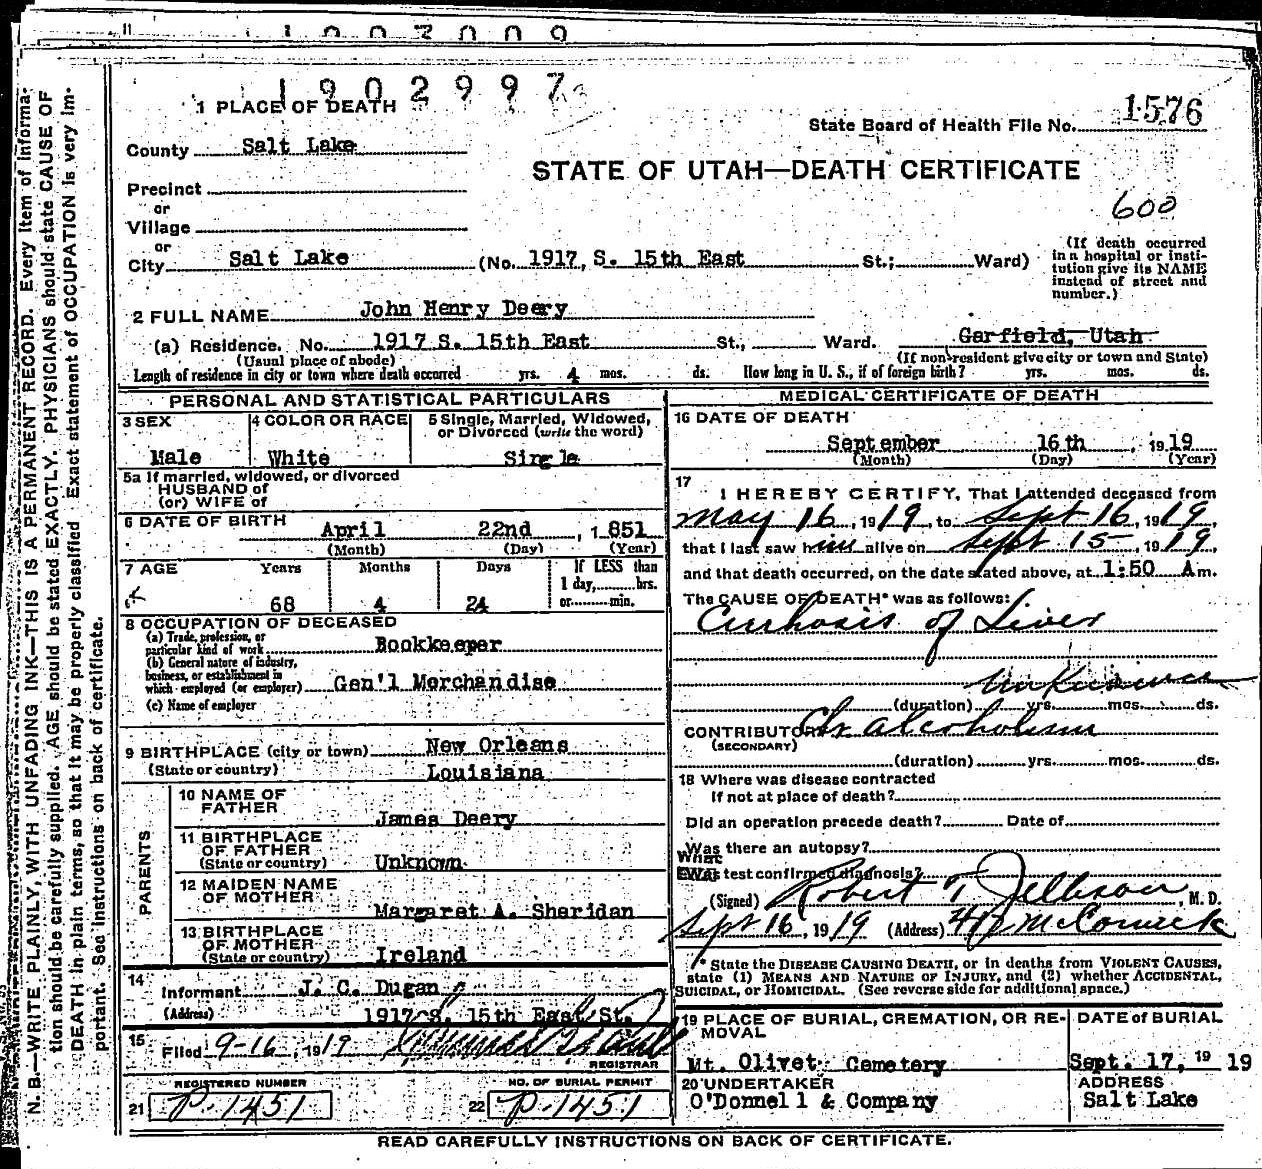 1902997
1576
1 PLACE OF DEATH
State Board of Health File No.
County Salt Lake
STATE OF UTAH—DEATH CERTIFICATE
Precinct
or
600
Village
or
City Salt Lake (No. 1917, S. 15th East St.; Ward)
(If death occurred in a hospital or institution give its NAME instead of street and number.)
2 FULL NAME John Henry Deery
(a) Residence. No. 1917 S. 15th East St., Ward. Garfield, Utah
(Usual place of abode) (If non-resident give city or town and State)
Length of residence in city or town where death occurred yrs. 4 mos. ds. How long in U. S., if of foreign birth? yrs. mos. ds.
PERSONAL AND STATISTICAL PARTICULARS
3 SEX 4 COLOR OR RACE 5 Single, Married, Widowed,
or Divorced (write the word)
Male White Single
5a If married, widowed, or divorced
HUSBAND of
(or) WIFE of
6 DATE OF BIRTH April 22nd, 1851
(Month) (Day) (Year)
7 AGE Years Months Days If LESS than
1 day, hrs.
68 4 24 or min.
8 OCCUPATION OF DECEASED
(a) Trade, profession, or
particular kind of work Bookkeeper
(b) General nature of industry,
business, or establishment in
which employed (or employer) Gen'l Merchandise
(c) Name of employer
9 BIRTHPLACE (city or town) New Orleans
(State or country) Louisiana
PARENTS
10 NAME OF
FATHER James Deery
11 BIRTHPLACE
OF FATHER
(State or country) Unknown
12 MAIDEN NAME
OF MOTHER Margaret A. Sheridan
13 BIRTHPLACE
OF MOTHER
(State or country) Ireland
14
Informant J. C. Dugan
(Address) 1917 S. 15th East St.
15 Filed 9-16, 1919
REGISTRAR
REGISTERED NUMBER NO. OF BURIAL PERMIT
21 P-1451 22 P-1451
MEDICAL CERTIFICATE OF DEATH
16 DATE OF DEATH
September 16th, 1919
(Month) (Day) (Year)
17
I HEREBY CERTIFY, That I attended deceased from
May 16, 1919, to Sept 16, 1919,
that I last saw him alive on Sept 15, 1919,
and that death occurred, on the date stated above, at 1:50 Am.
The CAUSE OF DEATH* was as follows:
Cirrhosis of Liver
Unknown
(duration) yrs. mos. ds.
CONTRIBUTORY Ch alcoholism
(SECONDARY)
(duration) yrs. mos. ds.
18 Where was disease contracted
If not at place of death?
Did an operation precede death? Date of
Was there an autopsy?
What
test confirmed diagnosis?
(Signed) Robert T. Jellison, M. D.
Sept 16, 1919 (Address) McCornick
* State the DISEASE CAUSING DEATH, or in deaths from VIOLENT CAUSES,
state (1) MEANS AND NATURE OF INJURY, and (2) whether ACCIDENTAL,
SUICIDAL, or HOMICIDAL. (See reverse side for additional space.)
19 PLACE OF BURIAL, CREMATION, OR RE- DATE of BURIAL
MOVAL
Mt. Olivet Cemetery Sept. 17, 19 19
20 UNDERTAKER ADDRESS
O'Donnell & Company Salt Lake
READ CAREFULLY INSTRUCTIONS ON BACK OF CERTIFICATE.
N. B.—WRITE PLAINLY, WITH UNFADING INK—THIS IS A PERMANENT RECORD. Every item of informa-
tion should be carefully supplied. AGE should be stated EXACTLY. PHYSICIANS should state CAUSE OF
DEATH in plain terms, so that it may be properly classified. Exact statement of OCCUPATION is very im-
portant. See instructions on back of certificate.